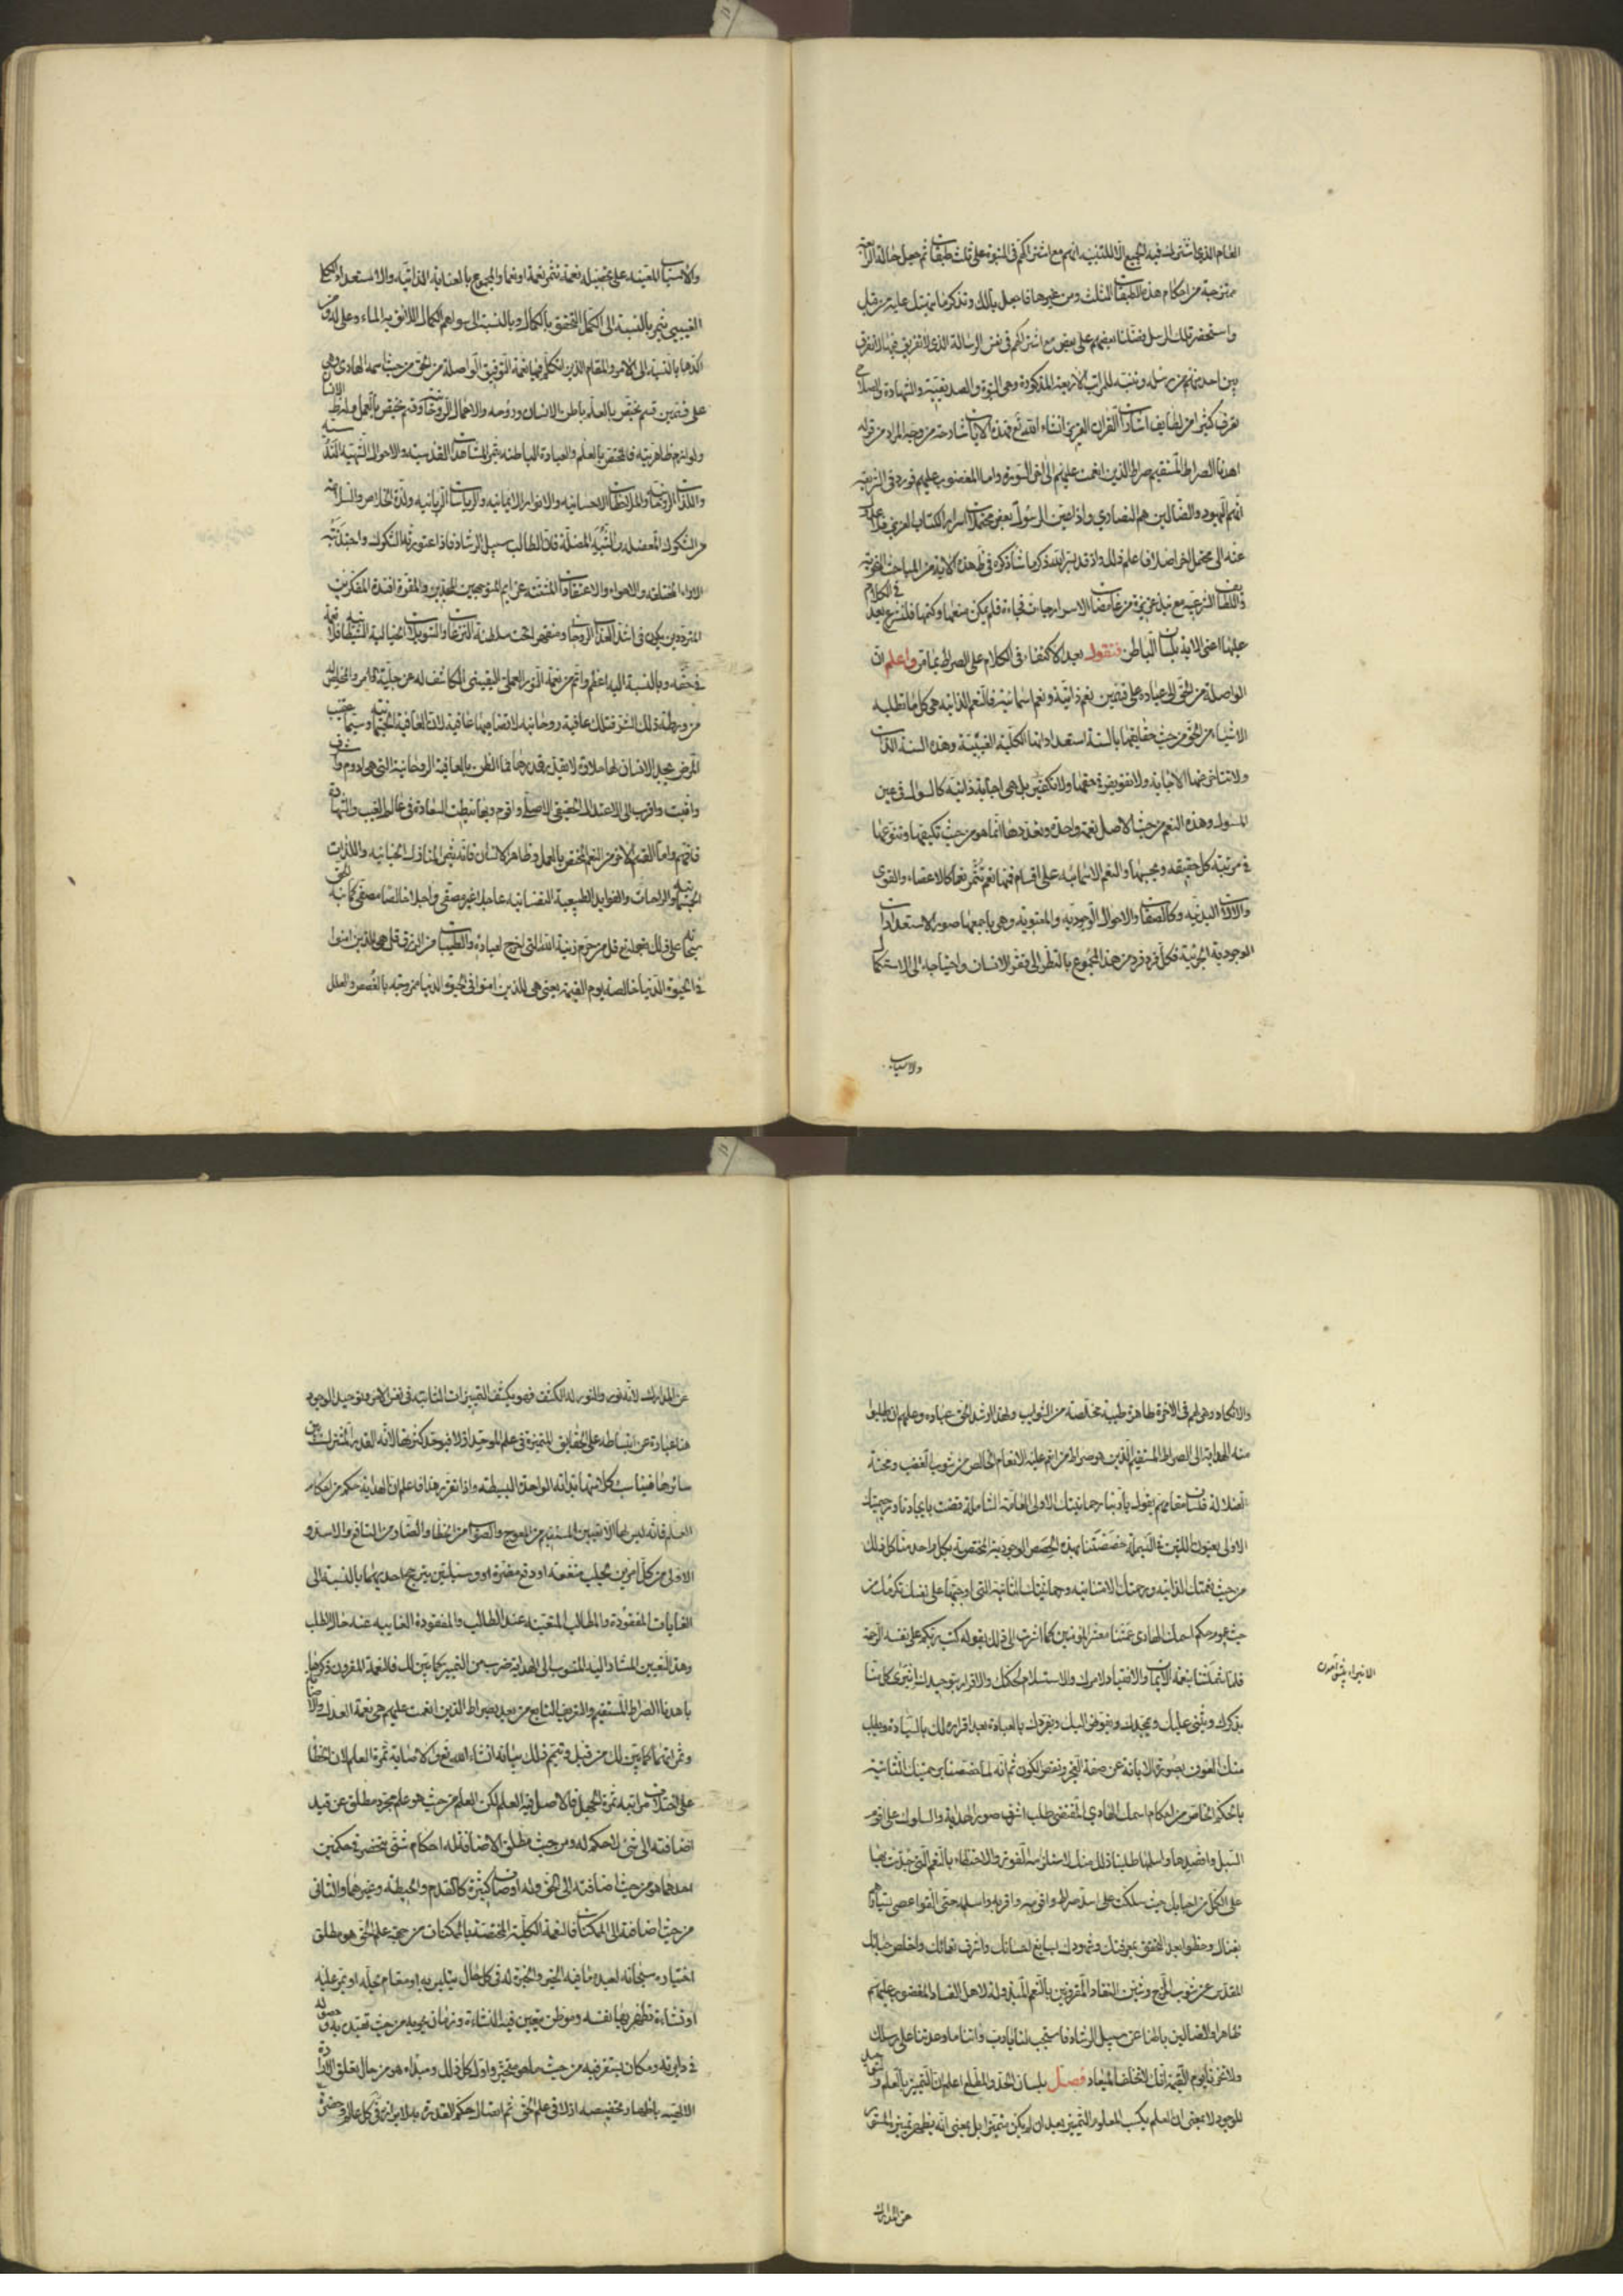 العام الذي اشترك فيه الجميع الا للتنبيه انهم مع اشتراكهم في النبوة على ثلث طبقات ثم جعل حالة الرابعة
ممتزجة من احكام هذه الطبقات الثلث ومن غيرها فاجعل بالك وتذكر ما نبهتك عليه من قبل
واستحضر تلك الرسل فضلنا بعضهم على بعض مع اشتراكهم في نفس الرسالة الذي لا تفريق فيها لا نفرق
بين احد منهم من رسله وتنبه للمراتب الاربعة المذكورة وهي النبوة والصديقية والشهادة والصلاح
تعرف كثيرا من لطايف اشارات القران العزيز انشاء الله تع فهذه الايات شارحة من وجه المراد من قوله
اهدنا الصراط المستقيم صراط الذين انعمت عليهم الى اخر السورة واما المغضوب عليهم فورد في الشريعة
انهم اليهود والضالين هم النصارى واذا عين الرسول بعض محتملات اسرار الكتاب العزيز فلا عدول
عنه الى محتمل اخر اصلا فاعلم ذلك واذ قد يسر الله ذكر ما شاء ذكره في ظاهر هذه الاية من المباحث اللغوية
واللطايف الشرعية مع نبذ عزيزة من غامضات الاسرار جاءت فجاءة فلم يمكن منعها وكتمها فلنشرع بعد في الكلام
عليها اعني الاية بلسان الباطن فنقول بعد الاكتفاء في الكلام على الصراط بما مر واعلم ان
الواصلة من الحق الى عباده على قسمين نعم ذاتية ونعم اسمائية فالنعم الذاتية هي كل ما تطلبه
الاشياء من الحق من حيث حقايقها بالسنة استعداداتها الكلية الغيبية وهذه السنة الذات
ولا تتاخر عنها الاجابة ولا تفويض في حقها ولا تكفير بل هي اجابة ذاتية كالسؤال في عين
المسؤل وهذه النعم من حيث الاصل نعمة واحدة وتعددها انما هو من حيث تكيفها وتنوعها
في مرتبة كل حقيقة وبحسبها والنعم الاسمائية على اقسام فمنها نعم تثمر نعما كالاعضاء والقوى
والالات البدنية وكالصفات والاحوال الوجودية والمعنوية وهي باجمعها صور الاستعدادات
الوجودية الجزئية فكل فرد فرد من هذا المجموع بالنظر الى فقر الانسان واحتياجه الى الاستكمال
والاسباب المعينة على تحصيله نعمة تثمر نعمة او نعما والمجموع بالعناية الذاتية والاستعداد الكلي
الغيبي يثمر بالنسبة الى الكمل التحقق بالكمال وبالنسبة الى سواهم الكمال اللائق به
على قسمين قسم يختص بالعلم باطن الانسان وروحه والاعمال الروحانية وقسم يختص بالعمل
ولوازم ظاهريته فالمختص بالعلم والعبادة الباطنة يثمر المشاهد القدسية والاحوال الشهية اللذيذة
واللذات الروحانية والملاحظات الاحسانية والانوار الايمانية والرياسات الربانية ولذة الخلاص والسلامة
من الشكوك المعضلة والشبه المضلة فان الطالب سبيل الرشاد فاذا اعتورته الشكوك واجتذبته
الاراء المختلفة والاهواء والاعتقادات المشتتة عزايم المتوجهين المحيرين والمفرقة افئدة المفكرين
المترددين يكون في اشد العذاب الروحاني ومنقهرا تحت سلطنة النزغات والتسويلات الخيالية الشيطانية فلا نعمة
في حقه وبالنسبة اليه اعظم واتم من نعمة النور العملي اليقيني الكاشف له عن جلية الامر والمخلص له
من ورطة ذلك الشر فتلك عافية روحانية لا تضاهيها عافية لان العافية الجسمانية وسيما عقيب
المرض يجد الانسان لها حلاوة لا يقدر قدرها فما الظن بالعافية الروحانية التي هي ادوم واشرف
واثبت واقرب الى الاعتدال الحقيقي الاصلي واقوم وبها نيطت السعادة في عالم الغيب والشهادة
فافهم واما القسم الاخر من النعم المختص بالعمل وظاهر الانسان فانه يثمر المنازل الجنانية واللذات
الجسمانية والراحات والفوايد الطبيعية النفسانية عاجلا غير مصفى واجلا خالصا مصفى كما نبه الحق
سبحانه على ذلك بقوله تع قل من حرم زينة الله التي اخرج لعباده والطيبات من الرزق قل هي للذين امنوا
في الحيوة الدنيا خالصة يوم القيمة يعني هي للذين امنوا في الحيوة الدنيا ممزوجة بالغصص والعلل
والاسباب
والانكاد وهي لهم في الاخرة طاهرة طيبة مخلصة من الشوايب ولهذا ارشد الحق عباده وعلمهم ان يطلبوا
منه الهداية الى الصراط المستقيم الذي هو صراط من انعم عليه الانعام الخالص من شوب الغضب ومحنة
الضلالة فلسان مقامهم يقول يا ربنا رحمانيتك الاولى العامة الشاملة قضت بايجادنا ورحيميتك
الاولى بعيون اللتين في البسملة خصصتنا بهذه الحصص الوجودية المختصة بكل واحد منا كل ذلك
من حيث نعمتك الذاتية ورحمتك الامتنانية ورحمانيتك الثانية التي اوجبتها على نفسك تكرما من
حيث عموم حكم اسمك الهادي عمتنا معشر المؤمنين كما اشرت الى ذلك بقولك كتب ربكم على نفسه الرحمة
فلما شملتنا نعمة الايمان والانقياد لامرك والاستسلام لحكمك والاقرار بتوحيدك انبرى كل منا
بذكرك ويثني عليك ويمجدك ويفوض اليك ويفردك بالعبادة بعد اقراره لك بالسيادة ويطلب
منك العون بصورة الابانة عن صفة العجز ونقص الكون ثم انه لما خصصتنا برحمتك الثانية
بالحكم الخاص من احكام اسمك الهادي المقتضي طلب اشرف صور الهداية والسلوك على اقوم
السبل واقصدها واسلمها طلبنا ذلك منك لاستلزامه الفوز والاحتظاء بالنعم التي جدت بها
على الكمل من احبابك حيث سلكت على اسد صراط واقومه واقربه واسلمه حتى القوا عصى تسيارهم
بفنائك وحظوا بعد التحقق بمعرفتك وشهودك بسابغ احسانك واشرف نعمائك واخلص حبائك
المقدس عن شوب المزج وشين النفاد المقرونين بالنعم المبذولة لاهل الفساد المغضوب عليهم
ظاهرا والضالين باطنا عن سبيل الرشاد فاستجب لنا يا رب واتنا ما وعدتنا على رسلك
ولا تخزنا يوم القيمة انك لا تخلف الميعاد فصل بلسان الحد والمطلع اعلم ان التمييز بالعلم والتوحيد
للوجود لا بمعنى ان العلم يكسب المعلوم التمييز بعد ان لم يكن متميزا بل بمعنى انه يظهر تمييزه المستور
الاخيران
عن المدارك لانه نور والنور له الكشف فهو يكشف التميزات الثابتة في نفس الامر وتوحيد الوجود
هنا عبارة عن انبساطه على الحقايق المتميزة في علم الموجد ازلا فيوحد كثرتها لانه القدر المشترك بين
سائرها فيناسب كلا منها بذاته الواحدة البسيطة واذا تقرر هذا فاعلم ان الهداية حكم من احكام
العلم فانه ليس لها الا تعيين المستقيم من المعوج والصواب من الخطا والضار من النافع والاسد و
الاولى من كل امرين يجلب منفعة او دفع مضرة او وسيلتين يترجح احديهما بالنسبة الى
الغايات المقصودة والمطالب المتعينة عند الطالب والمفقودة الغايبة عنه حال الطلب
وهذا التعيين المشار اليه المنسوب الى الهداية ضرب من التمييز كما بين لك فالنعمة المقرون ذكرها
باهدنا الصراط المستقيم والتعريف التابع من بعد بصراط الذين انعمت عليهم هي نعمة العدل والاصابة
وثمراتهما كما بين لك من قبل وتتميم ذلك بيانه انشاء الله تع من ان الاصابة ثمرة العلم لان الخطا
على اختلاف مراتبه ثمرة الجهل فالاصل فيه العلم لكن العلم من حيث هو علم مجرد مطلق عن قيد
اضافته الى شئ لا حكم له ومن حيث مطلق الاضافة له احكام شتى ينحصر في حكمين
احدهما هو من حيث اضافته الى الحق وله اوصاف كثيرة كالقدم والحيطة وغيرهما والثاني
من حيث اضافته الى الممكنات فالنعمة الكلية المختصة بالممكنات من جهة علم الحق هو مطلق
اختياره سبحانه لعبده ما فيه الخير والخيرة له في كل حال يتلبس به او مقام يحله او يمر عليه
او نشاءة تظهر بها نفسه وموطن يتعين فيه النشاءة وزمان يحويه من حيث تقيده به وحصوله
في دايرته ومكان يستقر فيه من حيث ما هو متحيز واول كل ذلك ومبداه هو من حال تعلق الارادة
الالهية باظهار تخصيصه ازلا في علم الحق ثم اتصال حكم القدرة به لابرازه في كل عالم وحضرة
عن المدارك